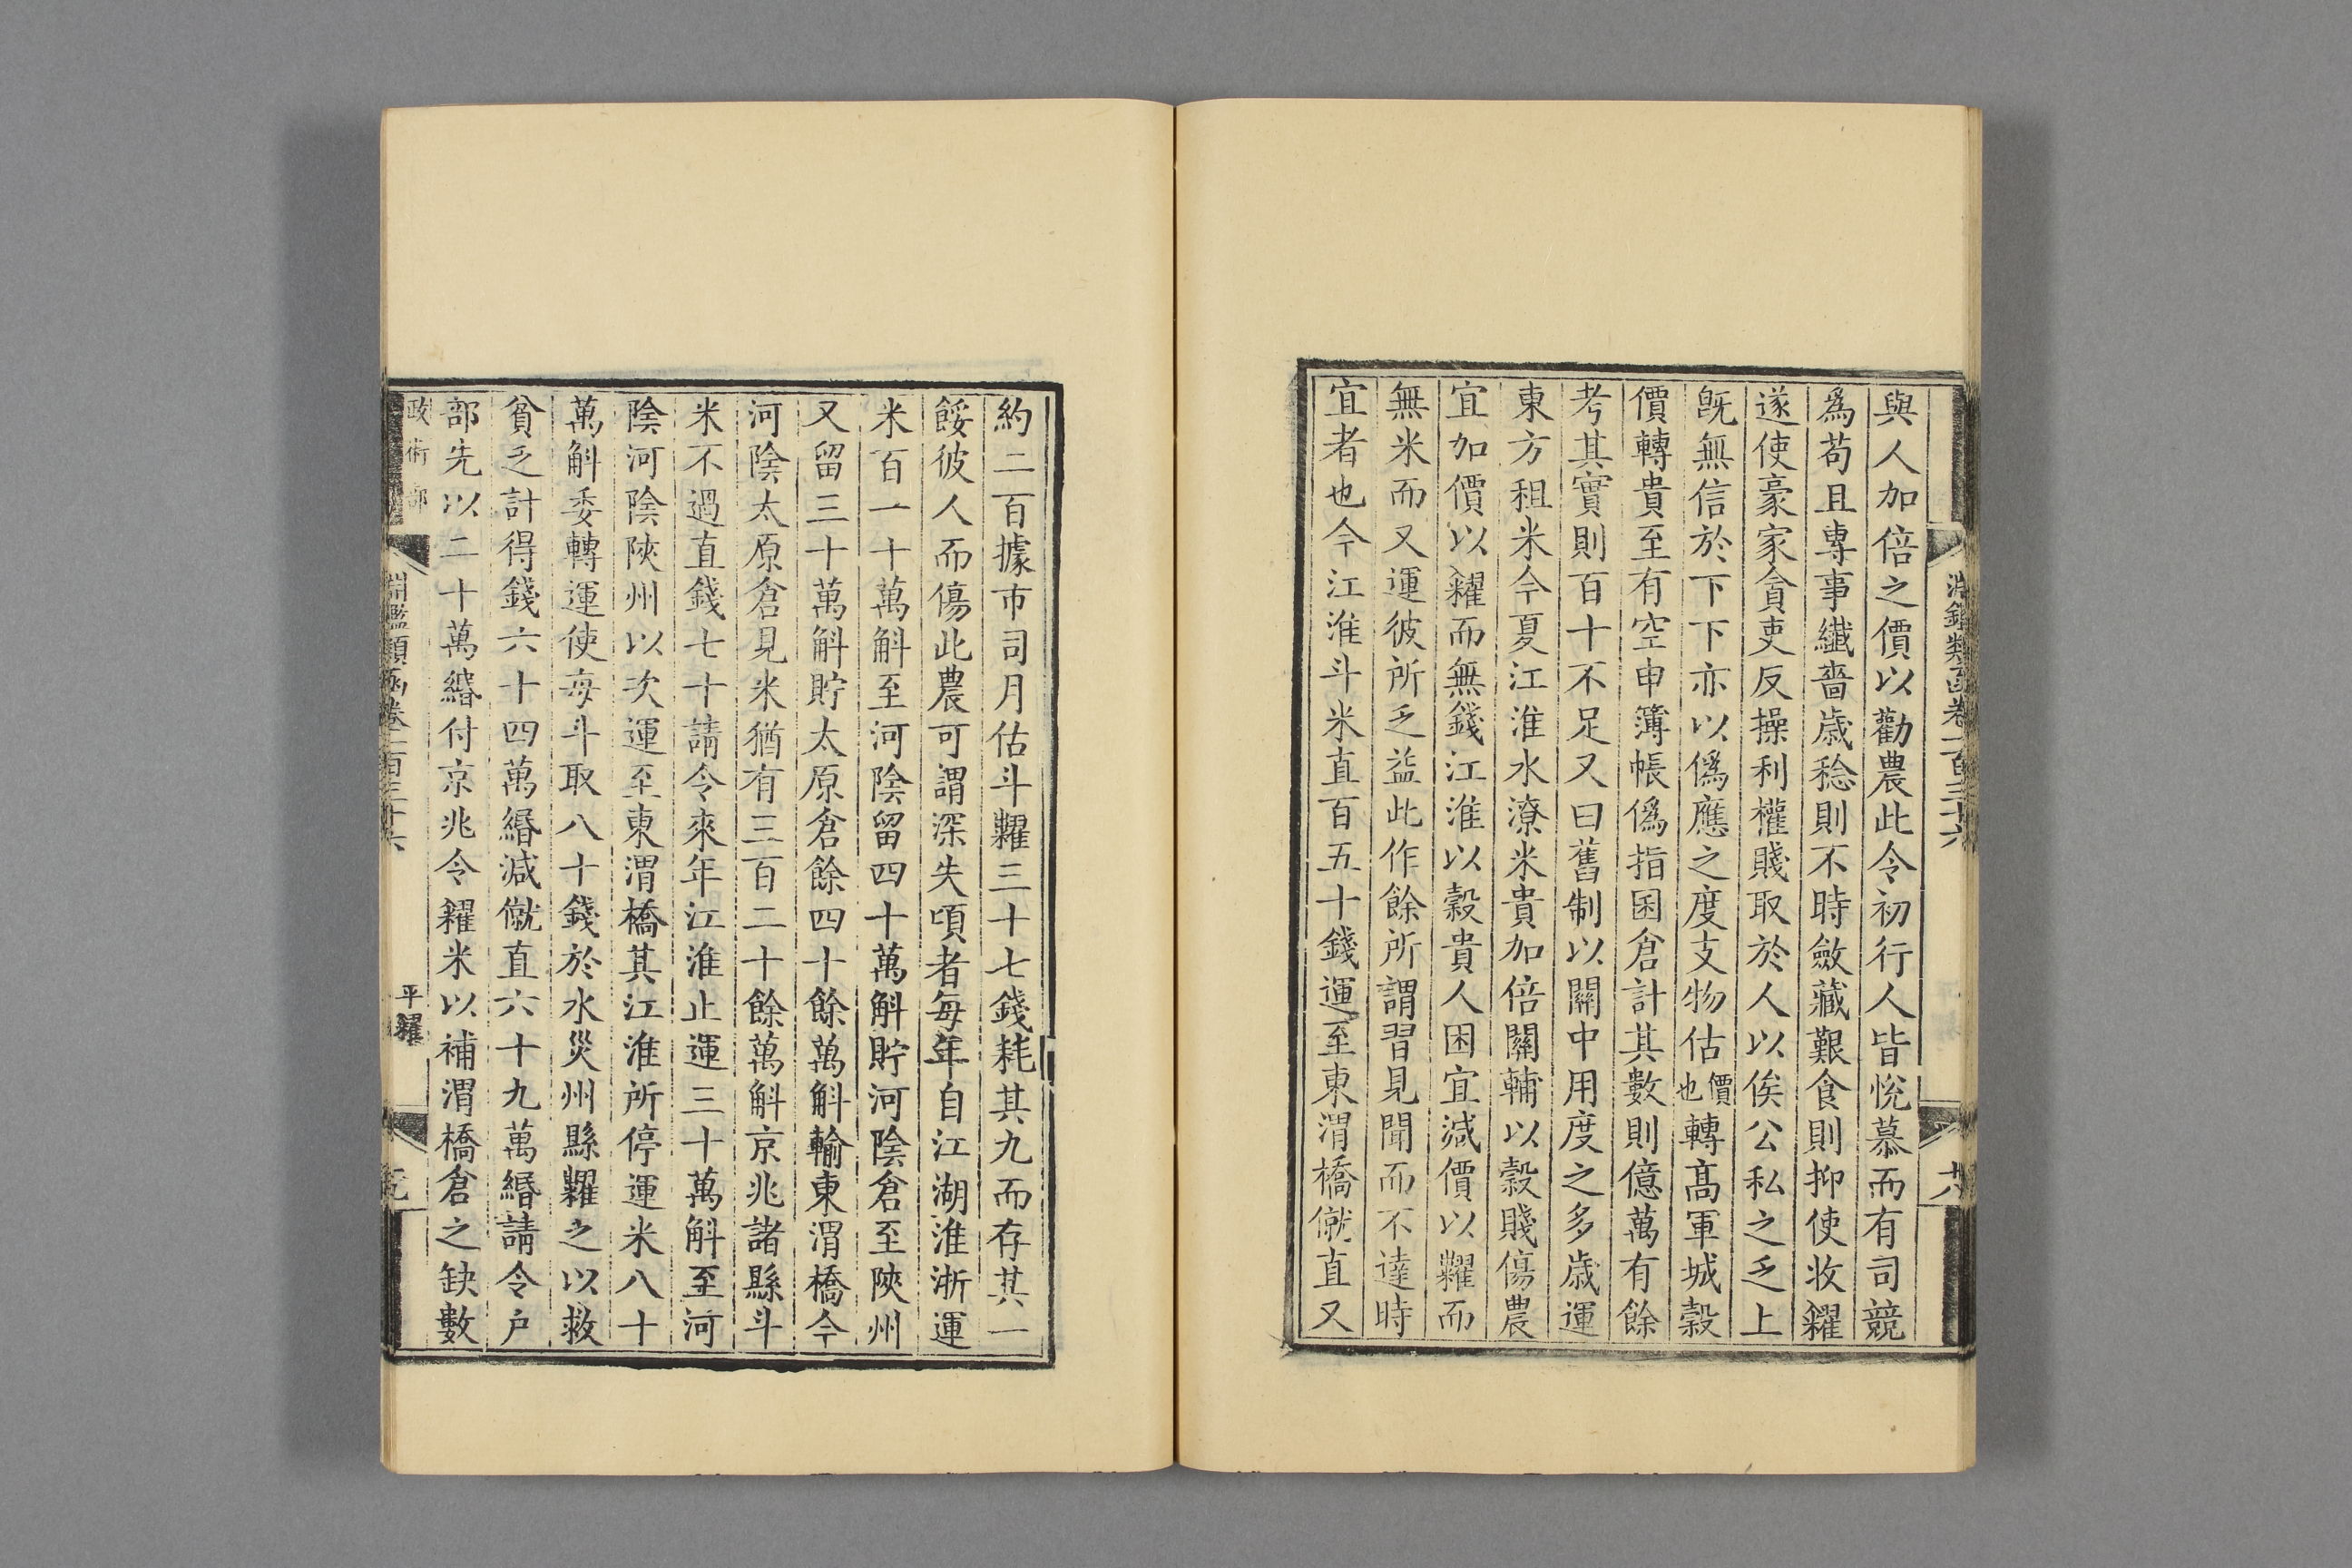 淵鑑類函卷一百三十六
十八
與人加倍之價以勸農此令初行人皆悅慕而有司競
爲苟且專事纎嗇歲稔則不時斂藏艱食則抑使收糴
遂使豪家貪吏反操利權賤取於人以俟公私之乏上
旣無信於下下亦以僞應之度支物估價也轉高軍城穀
價轉貴至有空申簿帳僞指囷倉計其數則億萬有餘
考其實則百十不足又曰舊制以關中用度之多歲運
東方租米今夏江淮水潦米貴加倍關輔以穀賤傷農
宜加價以糴而無錢江淮以穀貴人困宜減價以糶而
無米而又運彼所乏益此作餘所謂習見聞而不達時
宜者也今江淮斗米直百五十錢運至東渭橋僦直又
約二百據市司月估斗糶三十七錢耗其九而存其一
餒彼人而傷此農可謂深失頃者每年自江湖淮浙運
米百一十萬斛至河陰留四十萬斛貯河陰倉至陝州
又留三十萬斛貯太原倉餘四十餘萬斛輸東渭橋今
河陰太原倉見米猶有三百二十餘萬斛京兆諸縣斗
米不過直錢七十請令來年江淮止運三十萬斛至河
陰河陰陝州以次運至東渭橋其江淮所停運米八十
萬斛委轉運使每斗取八十錢於水災州縣糶之以救
貧乏計得錢六十四萬緡減僦直六十九萬緡請令戶
部先以二十萬緡付京兆令糴米以補渭橋倉之缺數
政術部
淵鑑類函卷一百三十六
平糶